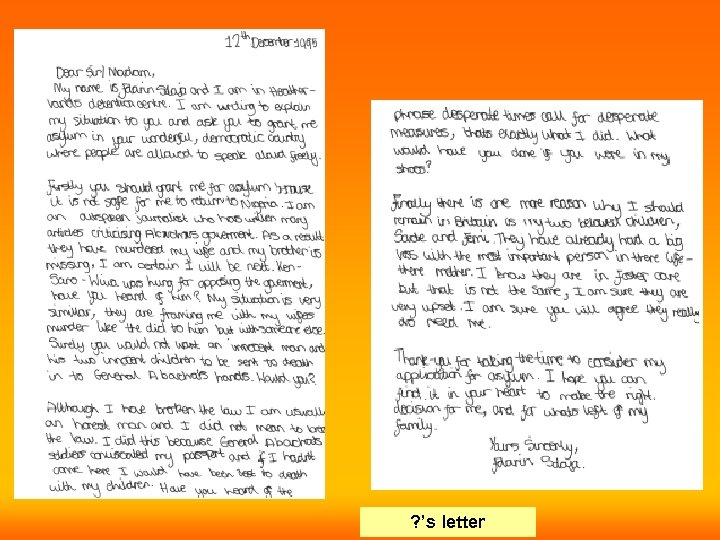 12th December 1995
Dear Sir/Madam,
My name is Folarin Solaja and I am in Heather-
varios detention centre. I am writing to explain
my situation to you and ask you to grant me
asylum in your wonderful, democratic country
where people are allowed to speak aloud freely.
Firstly you should grant me for asylum because
it is not safe for me to return to Nigeria. I am
an outspoken journalist who has written many
articles criticising Abachas goverment. As a result
they have murdered my wife and my brother is
missing, I am certain I will be next. Ken-
Saro-Wiwa was hung for opposing the goverment,
have you heard of him? My situation is very
similar, they are framing me with my wifes
murder like the did to him but with someone else.
Surely you would not want an innocent man and
his two innocent children to be sent to death
in to General Abacha's hands. Would you?
Although I have broken the law I am usually
an honest man and I did not mean to break
the law. I did this because General Abacha's
soldiers confiscated my passport and if I hadn't
came here I would have been lost to death
with my children. Have you heard of the
phrase desperate times call for desperate
measures, thats exactly what I did. What
would have you done if you were in my
shoes?
Finally there is one more reason why I should
remain in Britain as my two beloved children,
Sade and Femi. They have already had a big
loss with the most important person in there life-
there mother. I know they are in foster care
but that is not the same, I am sure they are
very upset. I am sure you will agree they really
do need me.
Thank-you for taking the time to consider my
application for asylum. I hope you can
find it in your heart to make the right
decision for me, and for whats left of my
family.
Yours Sincerely,
Folarin Solaja.
?’s letter